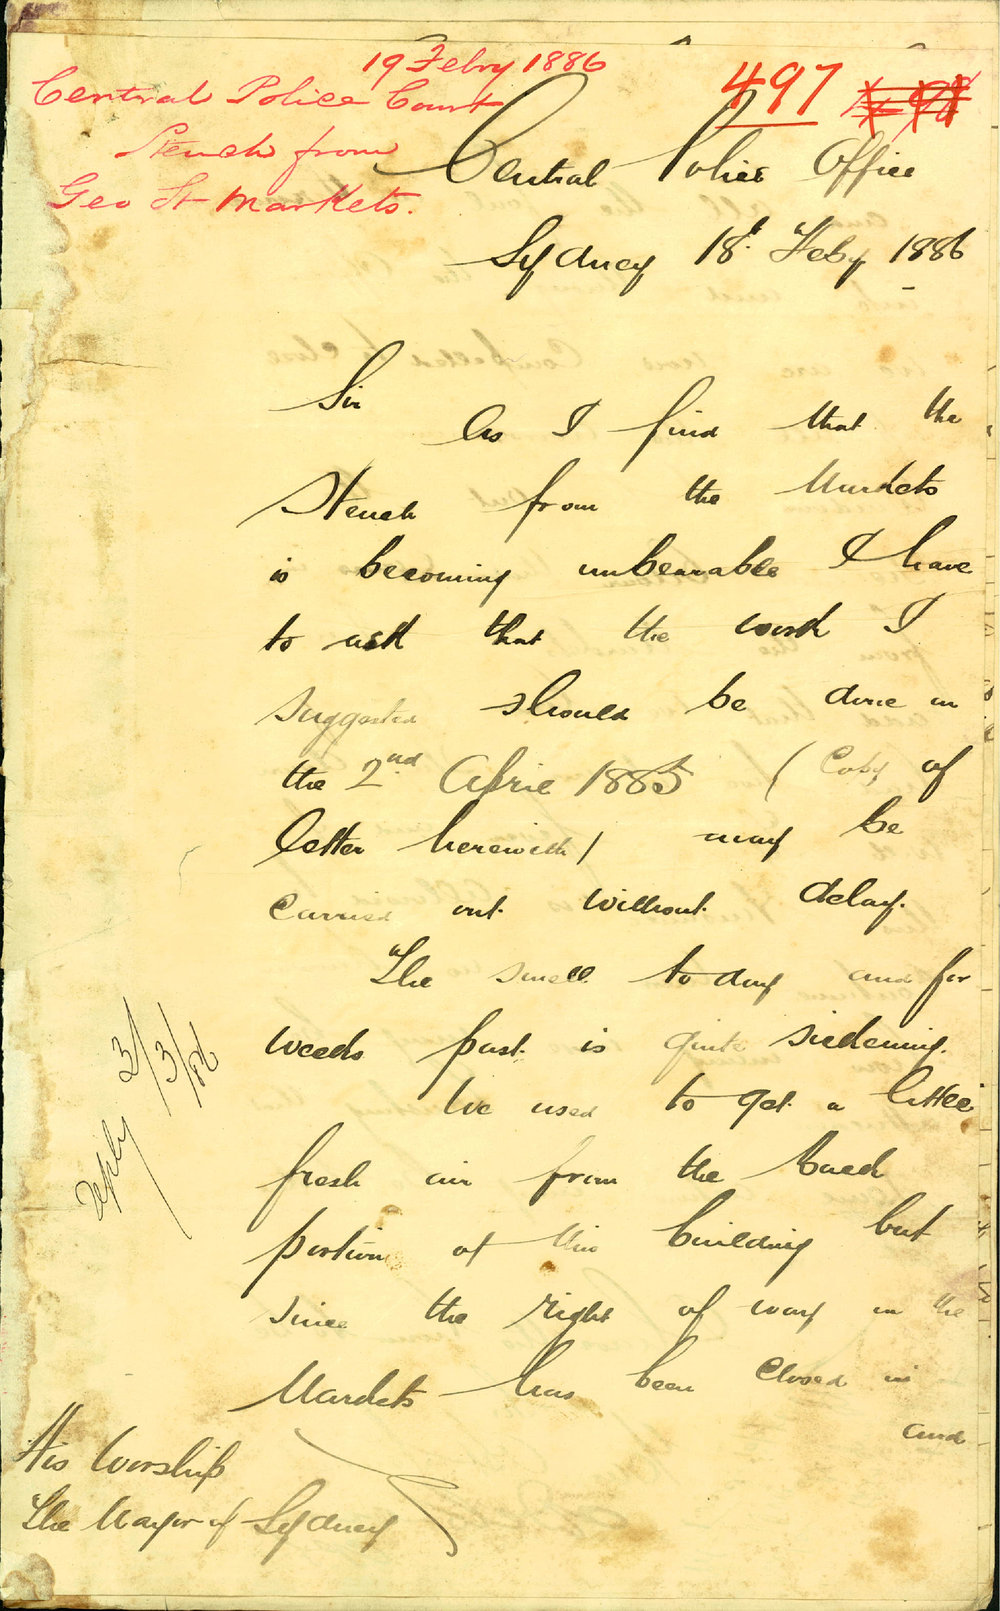 19 Febry 1886
Central Police Court
Stench from
Geo St Markets.
497
Central Police Office
Sydney 18th Feby 1886
Sir
As I find that the
Stench from the Markets
is becoming unbearable I have
to ask that the work I
suggested should be done in
the 2nd April 1885 (Copy of
letter herewith) may be
carried out without delay.
The smell to day and for
weeks past is quite sickening.
We used to get a little
fresh air from the back
portion of this building but
since the right of way in the
Markets has been closed in
and
His Worship
The Mayor of Sydney
reply 3/3/86